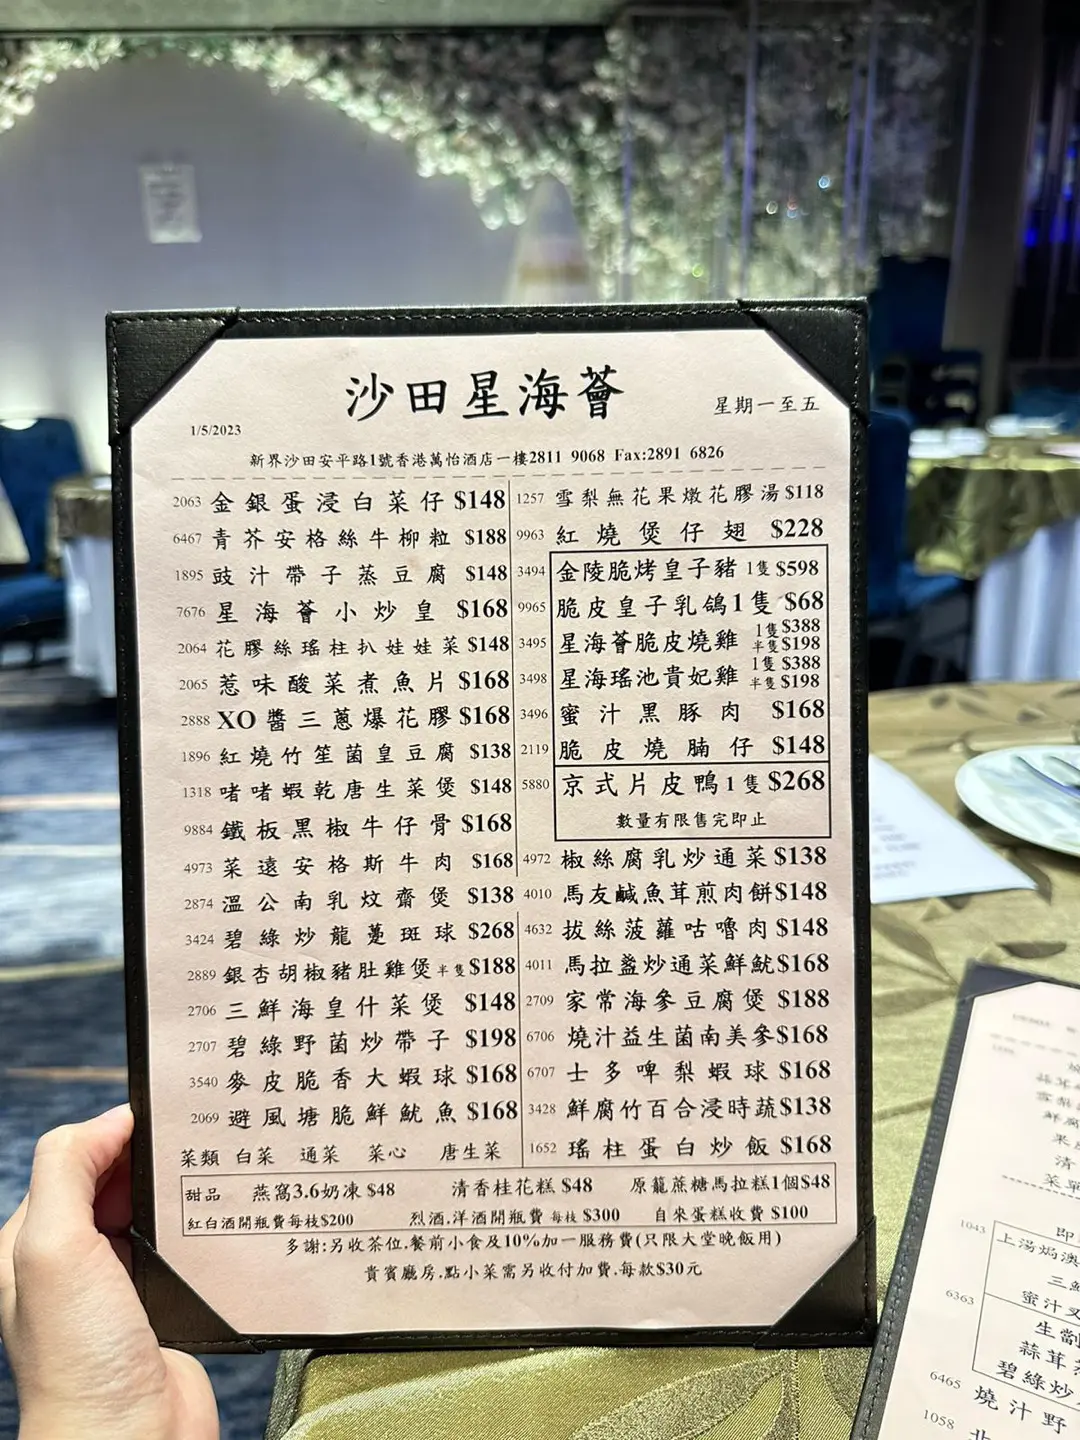 沙田星海薈
星期一至五
1/5/2023
新界沙田安平路1號香港萬怡酒店一樓2811 9068 Fax:2891 6826
2063 金銀蛋浸白菜仔 $148
6467 青芥安格絲牛柳粒 $188
1895 豉汁帶子蒸豆腐 $148
7676 星海薈小炒皇 $168
2064 花膠絲瑤柱扒娃娃菜 $148
2065 惹味酸菜煮魚片 $168
2888 XO醬三蔥爆花膠 $168
1896 紅燒竹笙菌皇豆腐 $138
1318 啫啫蝦乾唐生菜煲 $148
9884 鐵板黑椒牛仔骨 $168
4973 菜遠安格斯牛肉 $168
2874 溫公南乳炆齋煲 $138
3424 碧綠炒龍躉斑球 $268
2889 銀杏胡椒豬肚雞煲 半隻 $188
2706 三鮮海皇什菜煲 $148
2707 碧綠野菌炒帶子 $198
3540 麥皮脆香大蝦球 $168
2069 避風塘脆鮮魷魚 $168
菜類 白菜 通菜 菜心 唐生菜
1257 雪梨無花果燉花膠湯 $118
9963 紅燒煲仔翅 $228
3494 金陵脆烤皇子豬 1隻 $598
9965 脆皮皇子乳鴿1隻 $68
3495 星海薈脆皮燒雞 1隻 $388 半隻 $198
3498 星海瑤池貴妃雞 1隻 $388 半隻 $198
3496 蜜汁黑豚肉 $168
2119 脆皮燒腩仔 $148
5880 京式片皮鴨 1隻 $268
數量有限售完即止
4972 椒絲腐乳炒通菜 $138
4010 馬友鹹魚茸煎肉餅 $148
4632 拔絲菠蘿咕嚕肉 $148
4011 馬拉盞炒通菜鮮魷 $168
2709 家常海參豆腐煲 $188
6706 燒汁益生菌南美參 $168
6707 士多啤梨蝦球 $168
3428 鮮腐竹百合浸時蔬 $138
1652 瑤柱蛋白炒飯 $168
甜品 燕窩3.6奶凍 $48 清香桂花糕 $48 原籠蔗糖馬拉糕1個 $48
紅白酒開瓶費每枝$200 烈酒.洋酒開瓶費 每枝 $300 自來蛋糕收費 $100
多謝:另收茶位.餐前小食及10%加一服務費(只限大堂晚飯用)
貴賓廳房.點小菜需另收付加費.每款$30元
1043
上湯焗澳
三
蜜汁叉
6363
生劏
蒜茸
碧綠炒
6465 燒汁野
1058 北